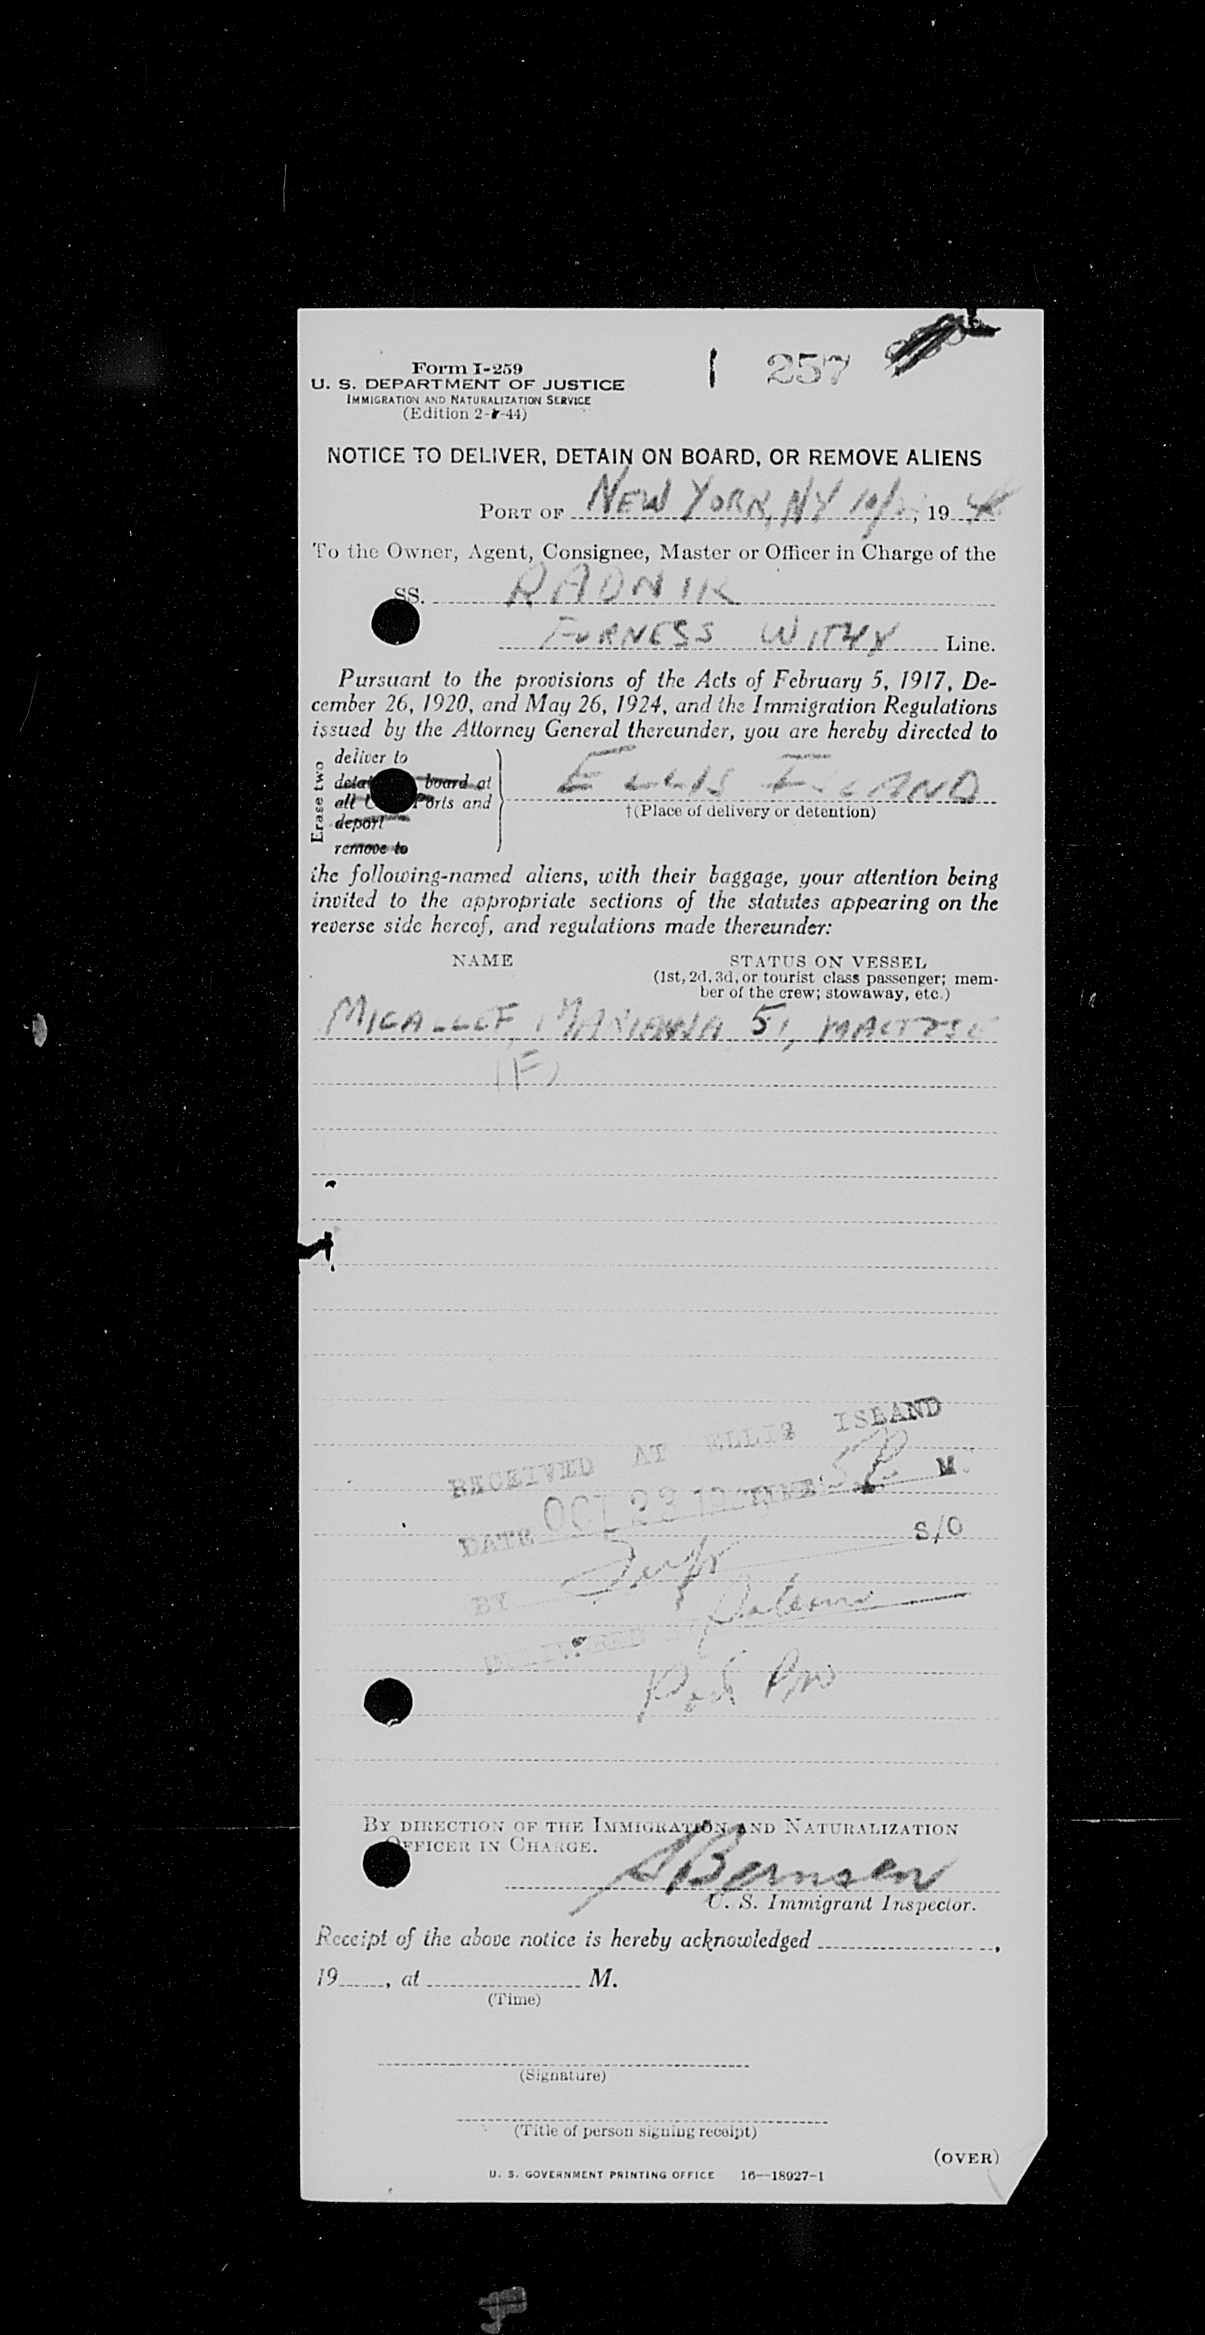 Form I-259
U. S. DEPARTMENT OF JUSTICE
IMMIGRATION AND NATURALIZATION SERVICE
(Edition 2-1-44)
1 257
NOTICE TO DELIVER, DETAIN ON BOARD, OR REMOVE ALIENS
PORT OF NEW YORK, NY 10/ , 19
To the Owner, Agent, Consignee, Master or Officer in Charge of the
SS. RADNIK
FURNESS WITHY Line.
Pursuant to the provisions of the Acts of February 5, 1917, De-
cember 26, 1920, and May 26, 1924, and the Immigration Regulations
issued by the Attorney General thereunder, you are hereby directed to
Erase two
deliver to
board at
all Ports and
deport
remove to
ELLIS ISLAND
†(Place of delivery or detention)
the following-named aliens, with their baggage, your attention being
invited to the appropriate sections of the statutes appearing on the
reverse side hereof, and regulations made thereunder:
NAME STATUS ON VESSEL
(1st, 2d, 3d, or tourist class passenger; mem-
ber of the crew; stowaway, etc.)
MICALLEF, MARIANNA 51, MALTESE
(F)
RECEIVED AT ELLIS ISLAND
DATE OCT 23 TIME M.
BY S/O
DELIVERED
BY DIRECTION OF THE IMMIGRATION AND NATURALIZATION
OFFICER IN CHARGE.
S Bernsen
U. S. Immigrant Inspector.
Receipt of the above notice is hereby acknowledged ,
19 , at M.
(Time)
(Signature)
(Title of person signing receipt)
(OVER)
U. S. GOVERNMENT PRINTING OFFICE 16—18927-1